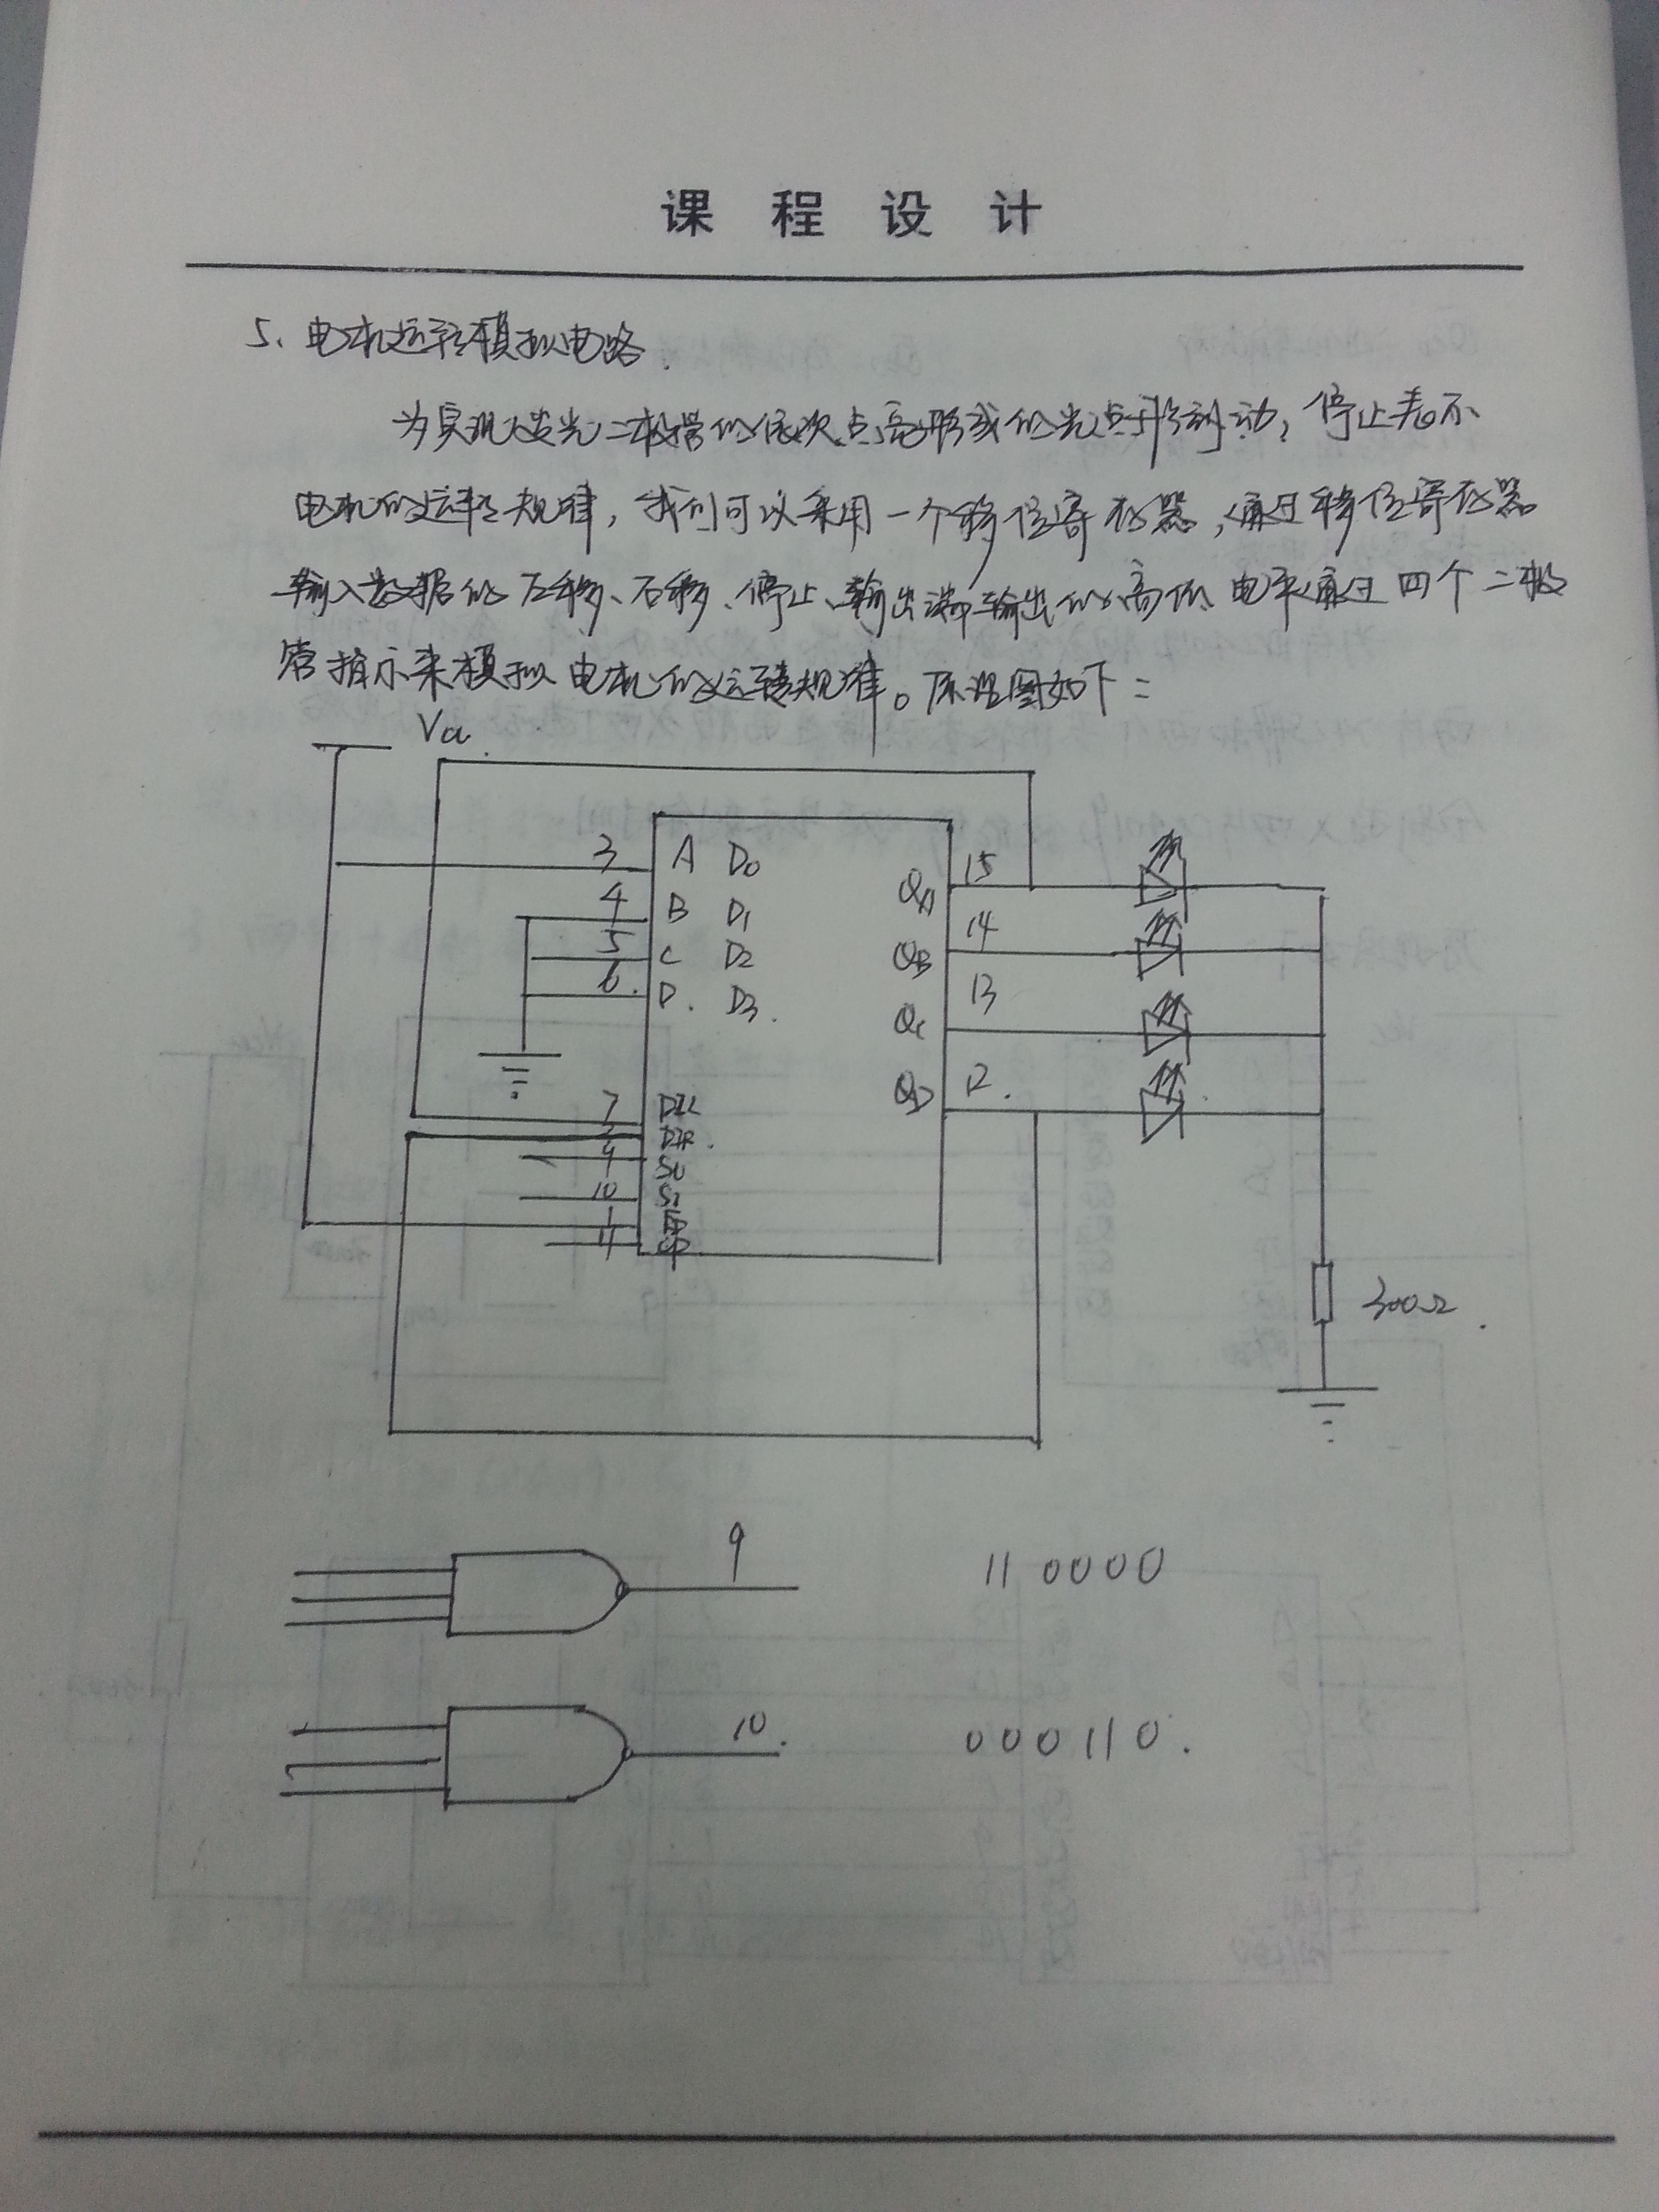 课程设计
5、电机运转模拟电路.
为实现发光二极管的依次点亮形成的光点移动,停止表示
电机的运转规律,我们可以采用一个移位寄存器,通过移位寄存器
输入数据的左移、右移、停止、输出端输出的高低电平通过四个二极
管指示来模拟电机的运转规律。原理图如下:
Vcc
3 A D0 QA 15
4 B D1 QB 14
5 C D2 QC 13
6. D. D3. QD 12.
7 DSL
2 DSR.
9 S0
10 S1
1
11 CP
300Ω
9 110000
10. 000110.